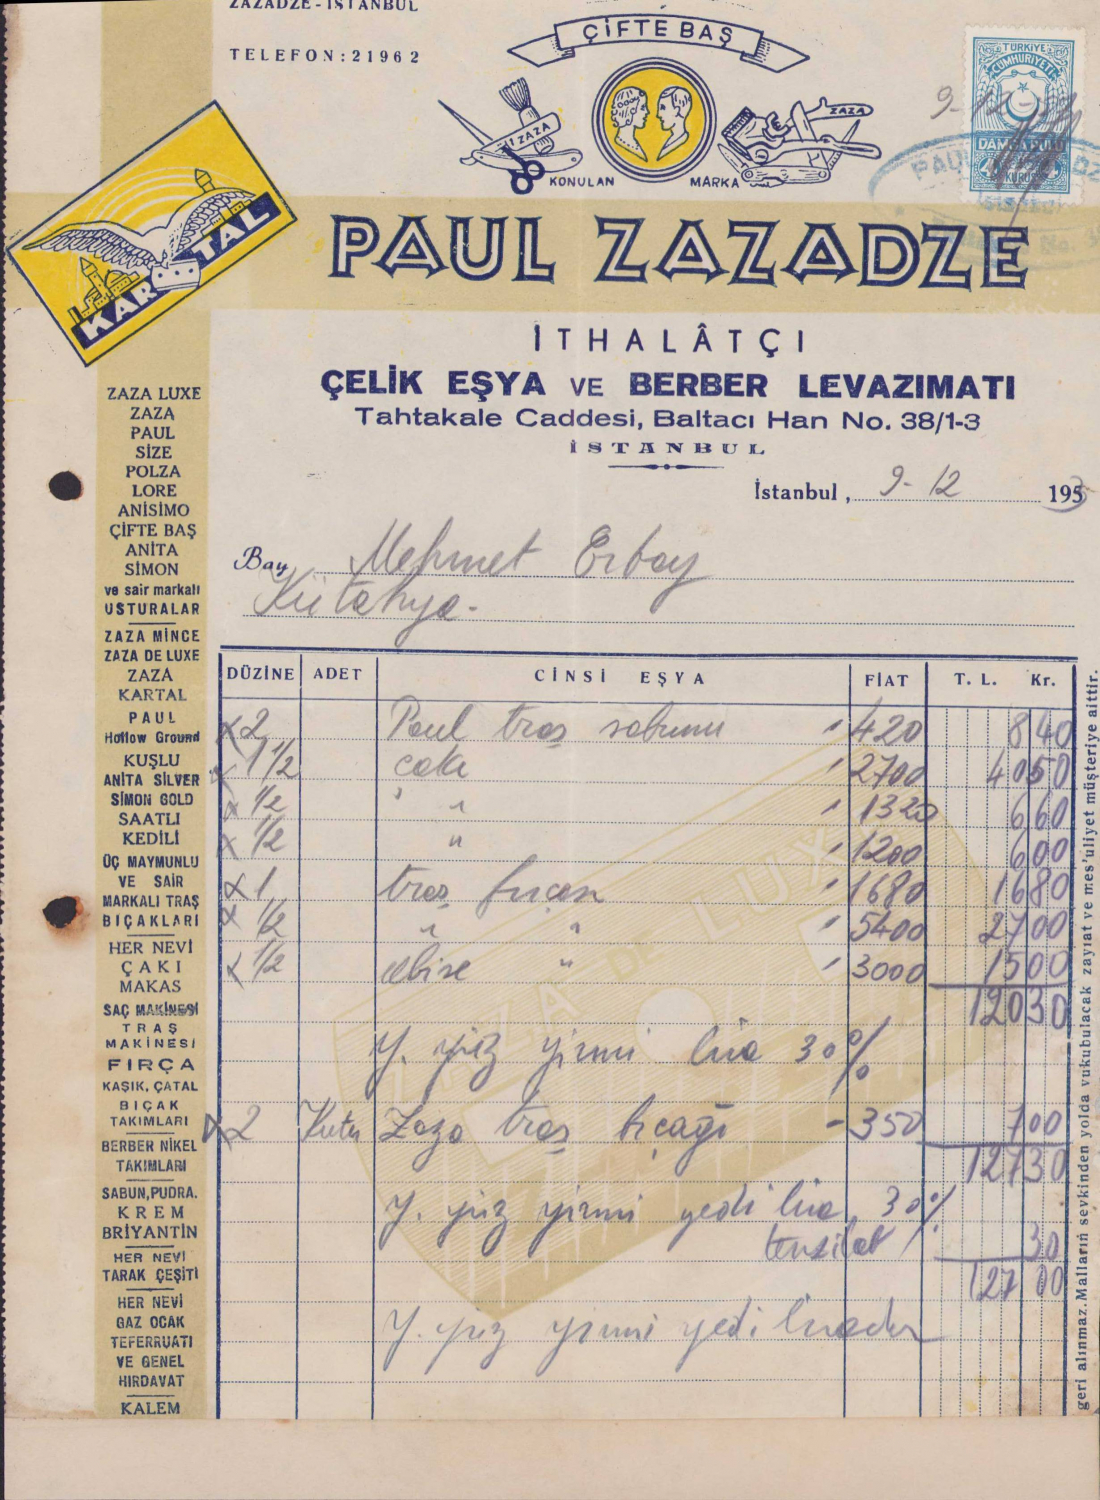 ZAZADZE - İSTANBUL
TELEFON : 21962
ÇİFTE BAŞ
ZAZA
ZAZA
KONULAN MARKA
TÜRKİYE
CUMHURİYETİ
DAMGA PULU
KURUŞ
KARTAL
PAUL ZAZADZE
İTHALÂTÇI
ÇELİK EŞYA VE BERBER LEVAZIMATI
Tahtakale Caddesi, Baltacı Han No. 38/1-3
İSTANBUL
İstanbul, 9-12 1953
Bay Mehmet Erbay
Kütahya.
ZAZA LUXE
ZAZA
PAUL
SİZE
POLZA
LORE
ANİSİMO
ÇİFTE BAŞ
ANİTA
SİMON
ve sair markalı
USTURALAR
ZAZA MİNCE
ZAZA DE LUXE
ZAZA
KARTAL
PAUL
Hollow Ground
KUŞLU
ANİTA SİLVER
SİMON GOLD
SAATLI
KEDİLİ
ÜÇ MAYMUNLU
VE SAİR
MARKALI TRAŞ
BIÇAKLARI
HER NEVİ
ÇAKI
MAKAS
SAÇ MAKİNESİ
TRAŞ
MAKİNESİ
FIRÇA
KAŞIK, ÇATAL
BIÇAK
TAKIMLARI
BERBER NİKEL
TAKIMLARI
SABUN, PUDRA.
KREM
BRİYANTİN
HER NEVİ
TARAK ÇEŞİTİ
HER NEVİ
GAZ OCAK
TEFERRUATI
VE GENEL
HIRDAVAT
KALEM
DÜZİNE ADET CİNSİ EŞYA FİAT T. L. Kr.
2 Paul traş sabunu 420 840
1 1/2 çakı 2700 4050
1/2 " 1320 660
1/2 " 1200 600
1 traş fırçası 1680 1680
1/2 " " 5400 2700
1/2 elbise " 3000 1500
12030
Y. yüz yirmi lira 30%
2 Kutu Zaza traş bıçağı - 350 700
12730
Y. yüz yirmi yedi lira 30%
tenzilat 30
12700
Y. yüz yirmi yedi liradır
ZAZA DE LUXE
geri alınmaz. Malların sevkinden yolda vukubulacak zayıat ve mes'uliyet müşteriye aittir.